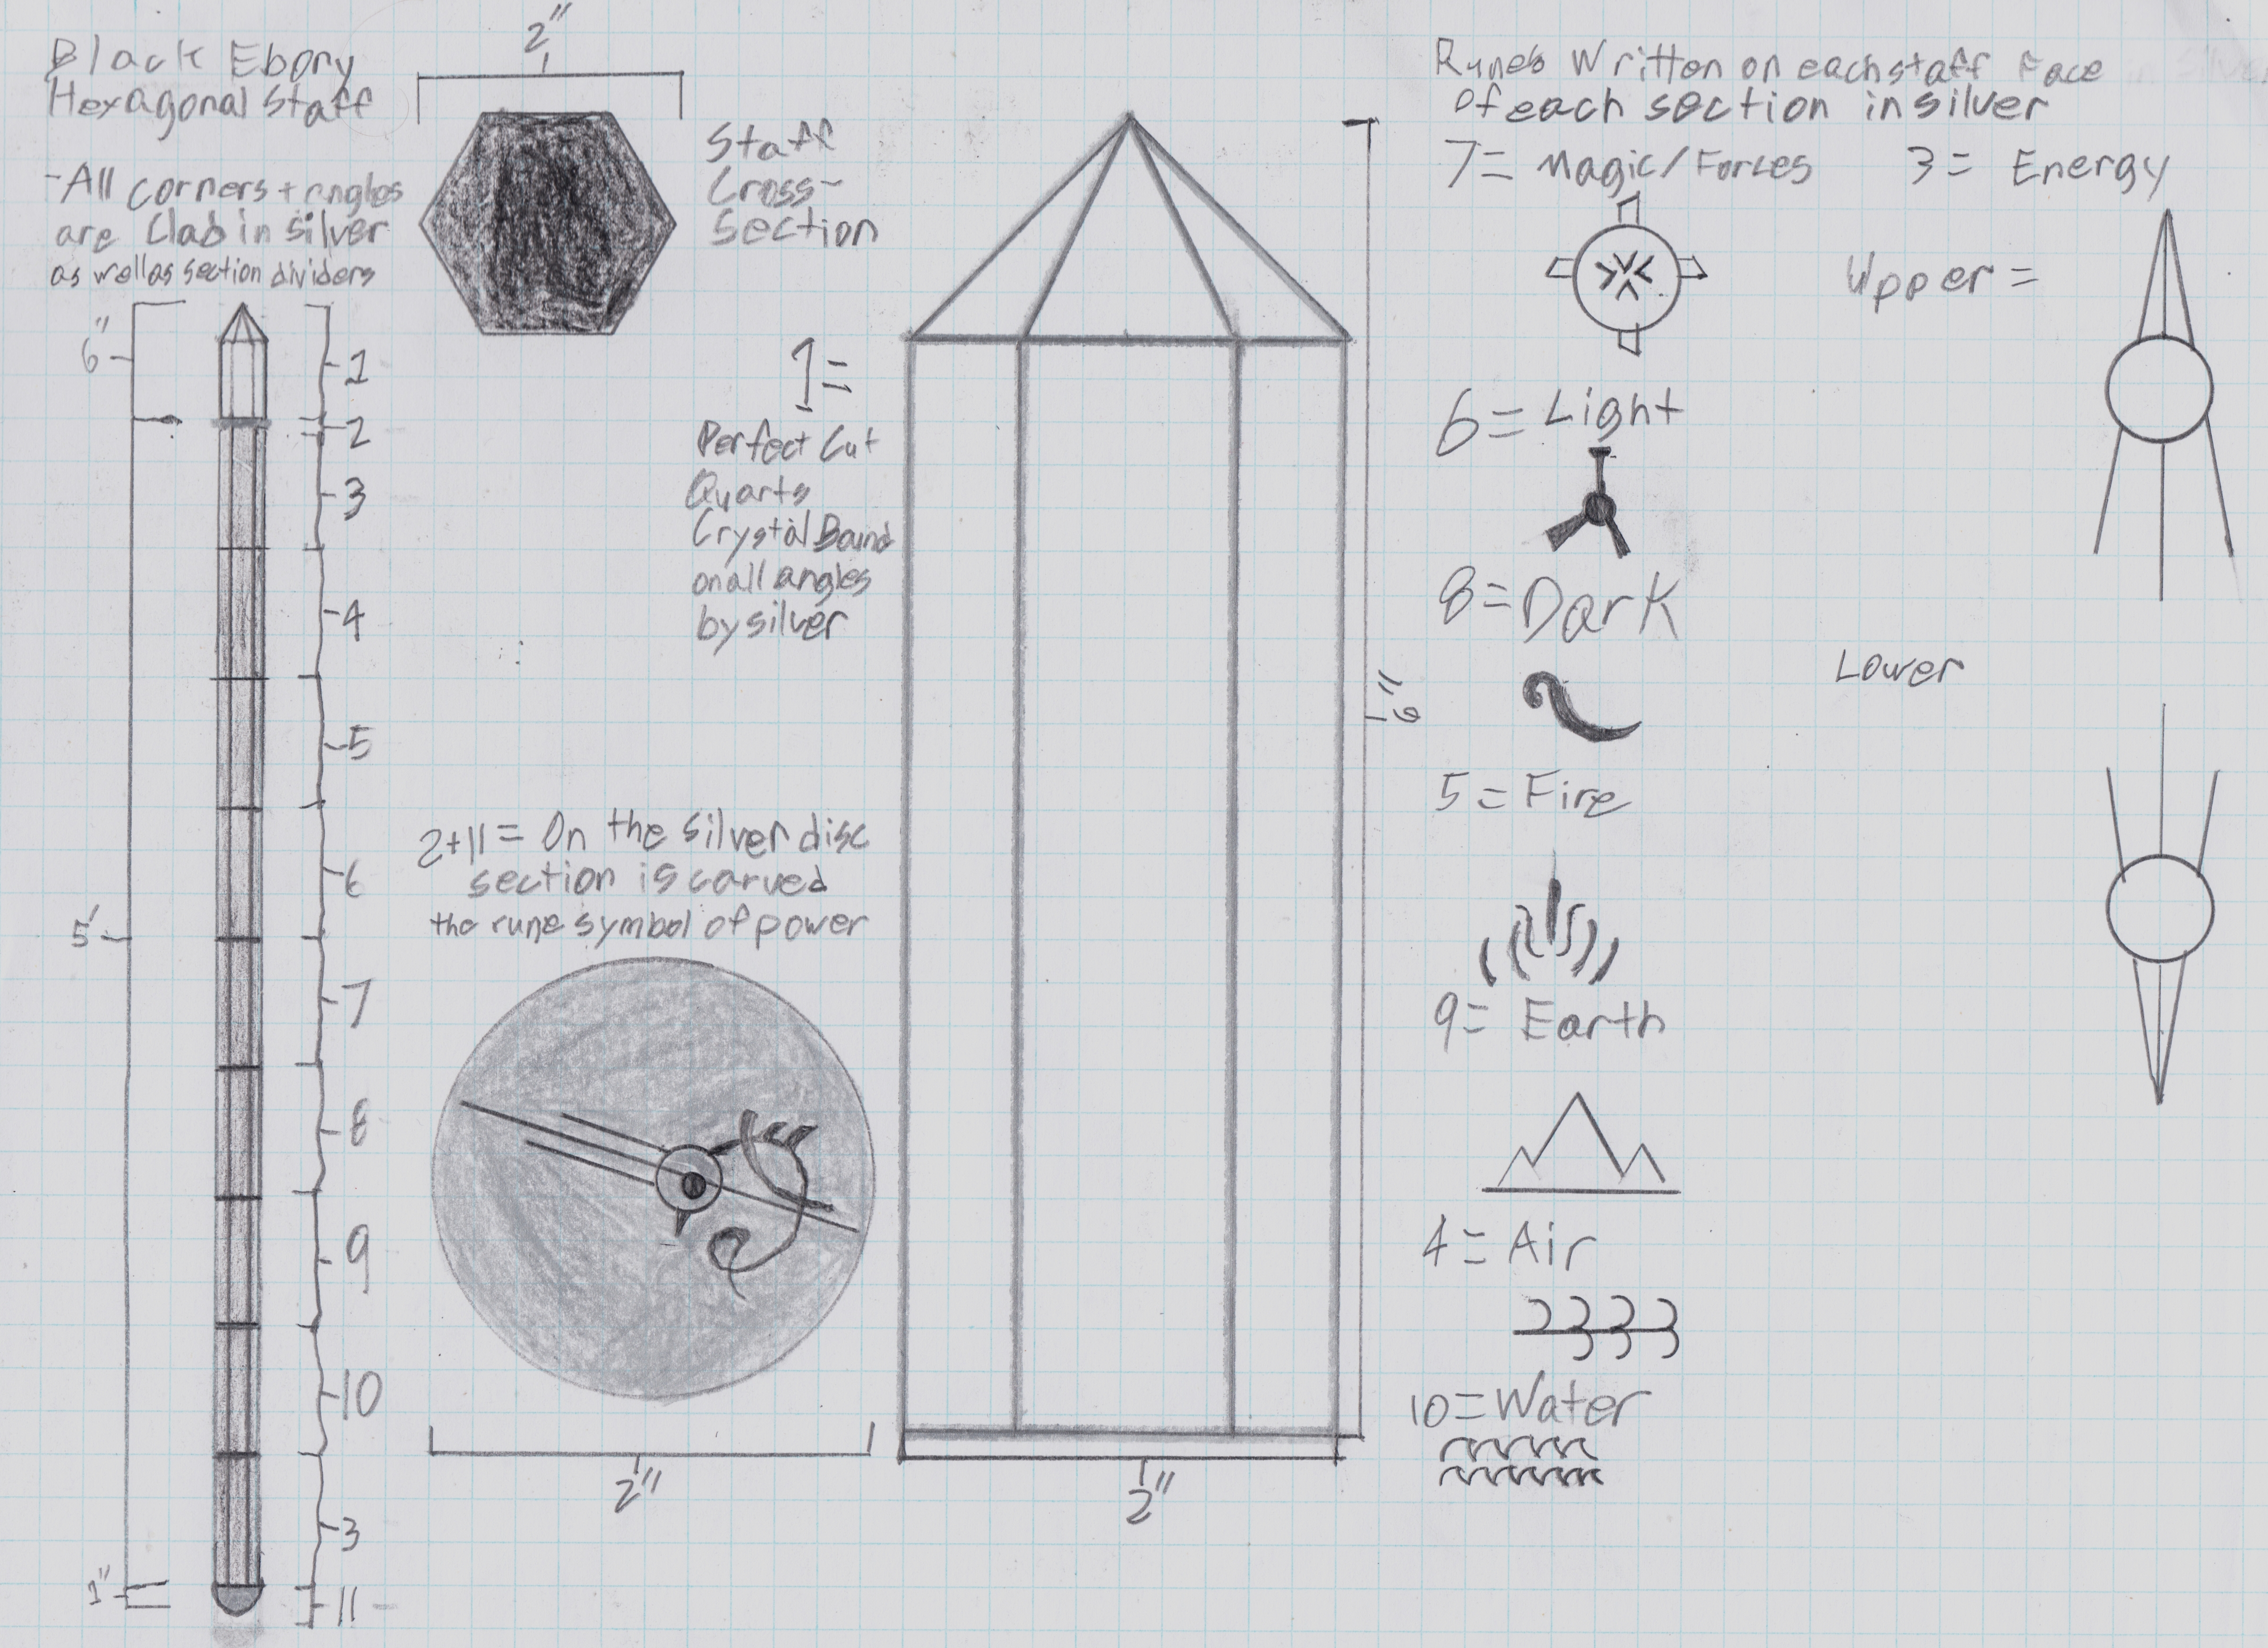 Black Ebony
Hexagonal Staff
-All corners + angles
are Clad in silver
as well as section dividers
2"
Staff
Cross-
Section
6"
5'
1"
1
2
3
4
5
6
7
8
9
10
3
11
1=
Perfect Cut
Quarts
Crystal Bound
on all angles
by silver
6"
2"
2+11= On the silver disc
section is carved
the rune symbol of power
2"
Runes Written on each staff Face
of each section in silver
7= Magic/Forces
3= Energy
Upper =
Lower
6= Light
8= Dark
5= Fire
9= Earth
4= Air
10= Water